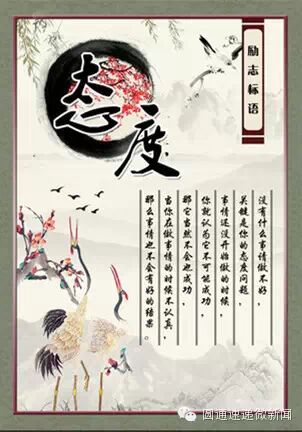 励志标语
态度
没有什么事情做不好，
关键是你的态度问题，
事情还没开始做的时候，
你就认为它不可能成功，
那它当然不会也成功，
当你在做事情的时候不认真，
那么事情也不会有好的结果。
圆通速递微新闻